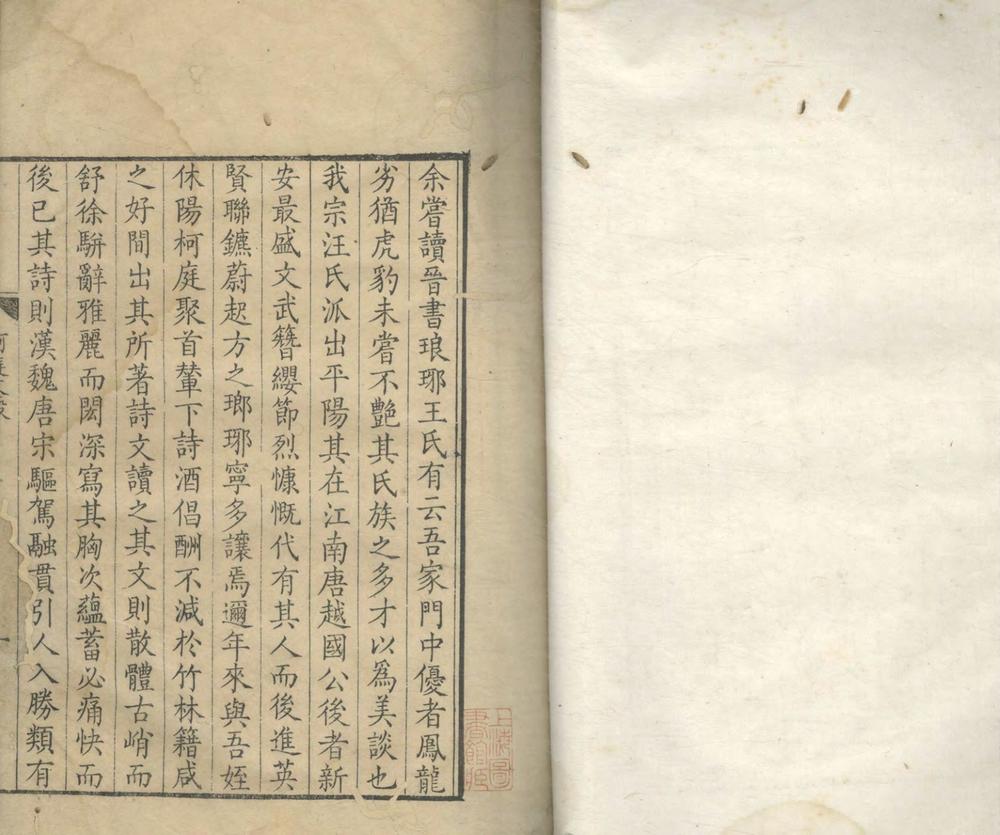 余嘗讀晉書琅琊王氏有云吾家門中優者鳳龍
劣猶虎豹未嘗不艷其氏族之多才以爲美談也
我宗汪氏派出平陽其在江南唐越國公後者新
安最盛文武簪纓節烈慷慨代有其人而後進英
賢聯鑣蔚起方之瑯琊寧多讓焉邇年來與吾姪
休陽柯庭聚首輦下詩酒倡酬不減於竹林籍咸
之好間出其所著詩文讀之其文則散體古峭而
舒徐駢辭雅麗而閎深寫其胸次蘊蓄必痛快而
後已其詩則漢魏唐宋驅駕融貫引人入勝類有
上海圖書館